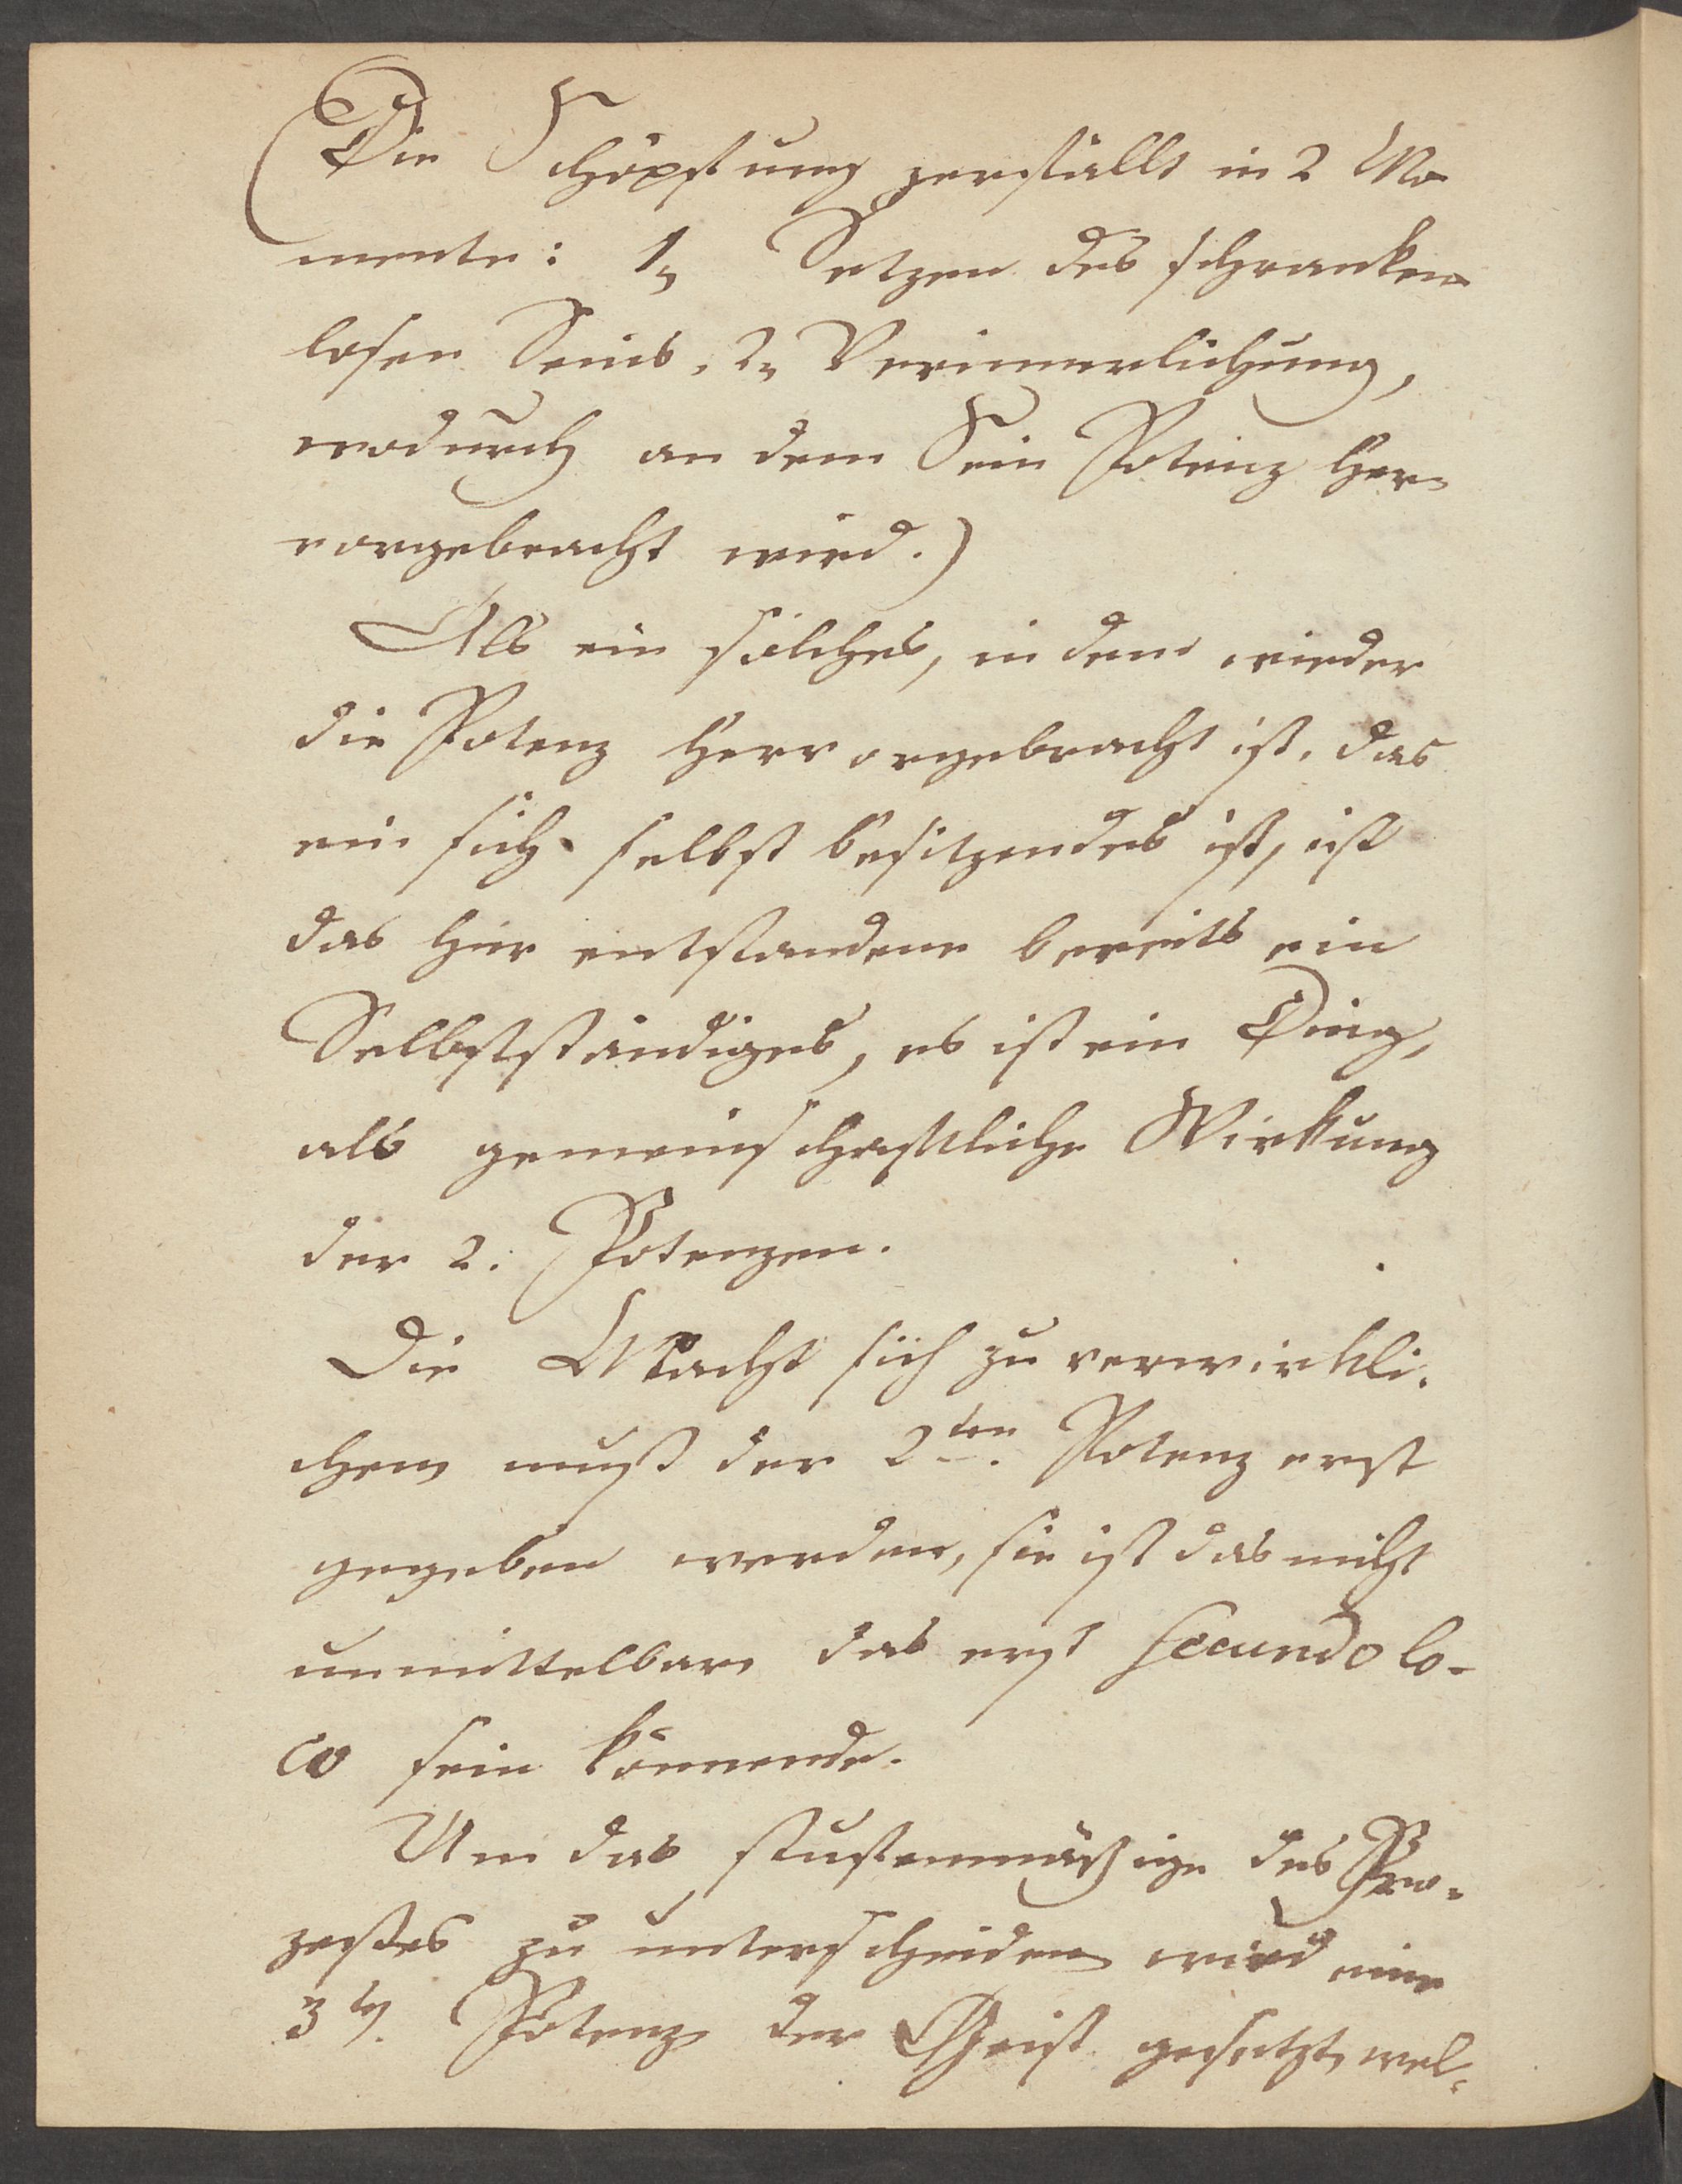 (Die Schöpfung zerfällt in 2 Mo-
mente: 1, Setzen des schranken-
losen Seins, 2, Verinnerlichung,
wodurch an dem Sein Potenz her-
vorgebracht wird.)
Als ein solches, in dem wieder
die Potenz hervorgebracht ist, das
ein sich selbst besitzendes ist, ist
das hier entstandene bereits ein
Selbstständiges, es ist ein Ding,
als gemeinschaftliche Wirkung
der 2. Potenzen.
Die Macht sich zu verwirkli-
chen muß der 2ten. Potenz erst
gegeben werden, sie ist das nicht
unmittelbar, das erst secundo lo-
co sein könnende.
Um das stufenmäßige des Pro-
zeßes zu unterscheiden wird eine
3te. Potenz der Geist gesetzt, wel-